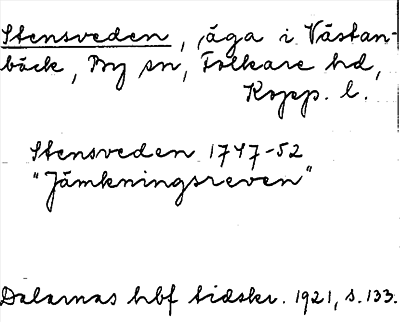 Stensveden, äga i Västan-
bäck, By sn, Folkare hd,
Kopp. l.
Stensveden 1747-52
"Jämkningsreven"
Dalarnas hbf tidskr. 1921, s. 133.